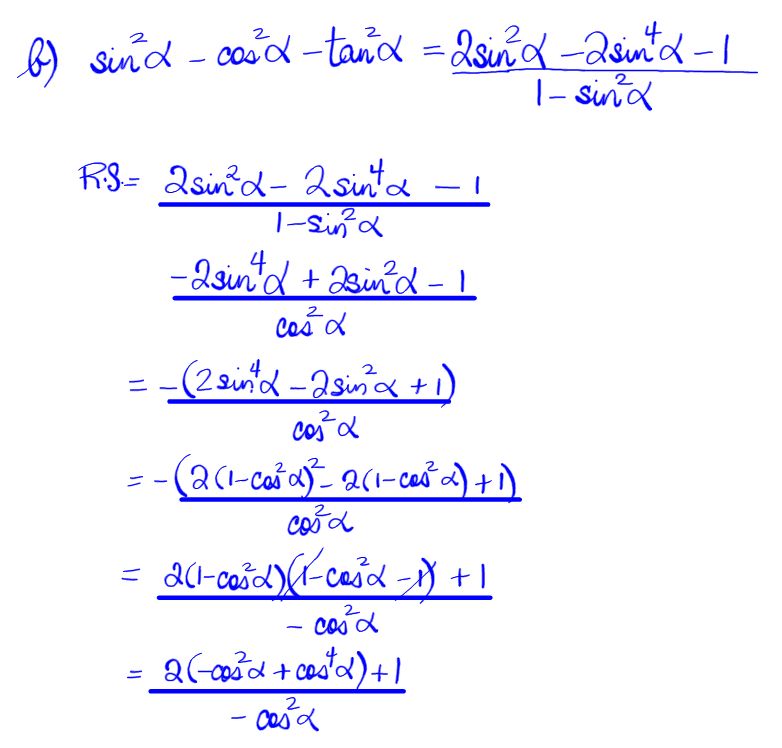 b) sin²α - cos²α - tan²α = 2sin²α - 2sin⁴α - 1
1 - sin²α
R.S. = 2sin²α - 2sin⁴α - 1
1 - sin²α
-2sin⁴α + 2sin²α - 1
cos²α
= -(2sin⁴α - 2sin²α + 1)
cos²α
= -(2(1-cos²α)² - 2(1-cos²α) + 1)
cos²α
= 2(1-cos²α)(1-cos²α - 1) + 1
- cos²α
= 2(-cos²α + cos⁴α) + 1
- cos²α